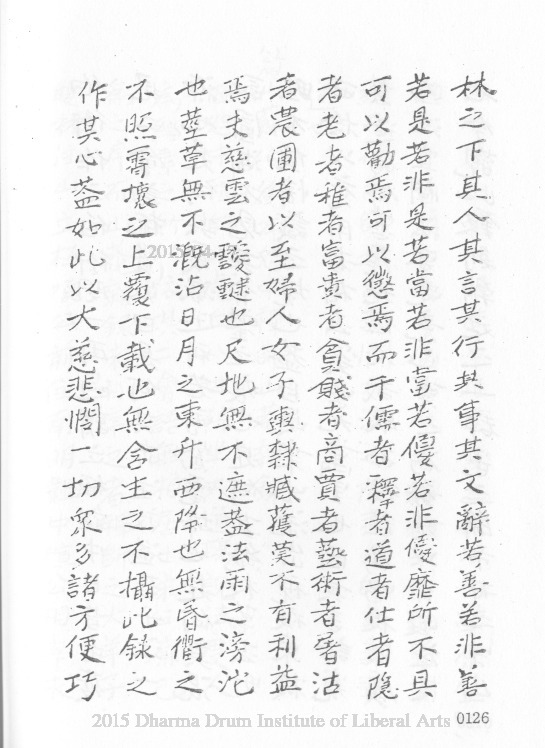 林之下其人其言其行其事其文辭若善若非善
若是若非是若當若非當若優若非優靡所不具
可以勸焉可以懲焉而于儒者釋者道者仕者隱
者老者稚者富貴者貧賤者商賈者藝術者屠沽
者農圃者以至婦人女子輿隸臧獲莫不有利益
焉夫慈雲之靉靆也尺地無不遮蓋法雨之滂沱
也莖草無不溉沾日月之東升西降也無昏衢之
不照霄壤之上覆下載也無含生之不攝此錄之
作其心葢如此以大慈悲憫一切眾多諸方便巧
2015 Dharma Drum Institute of Liberal Arts 0126